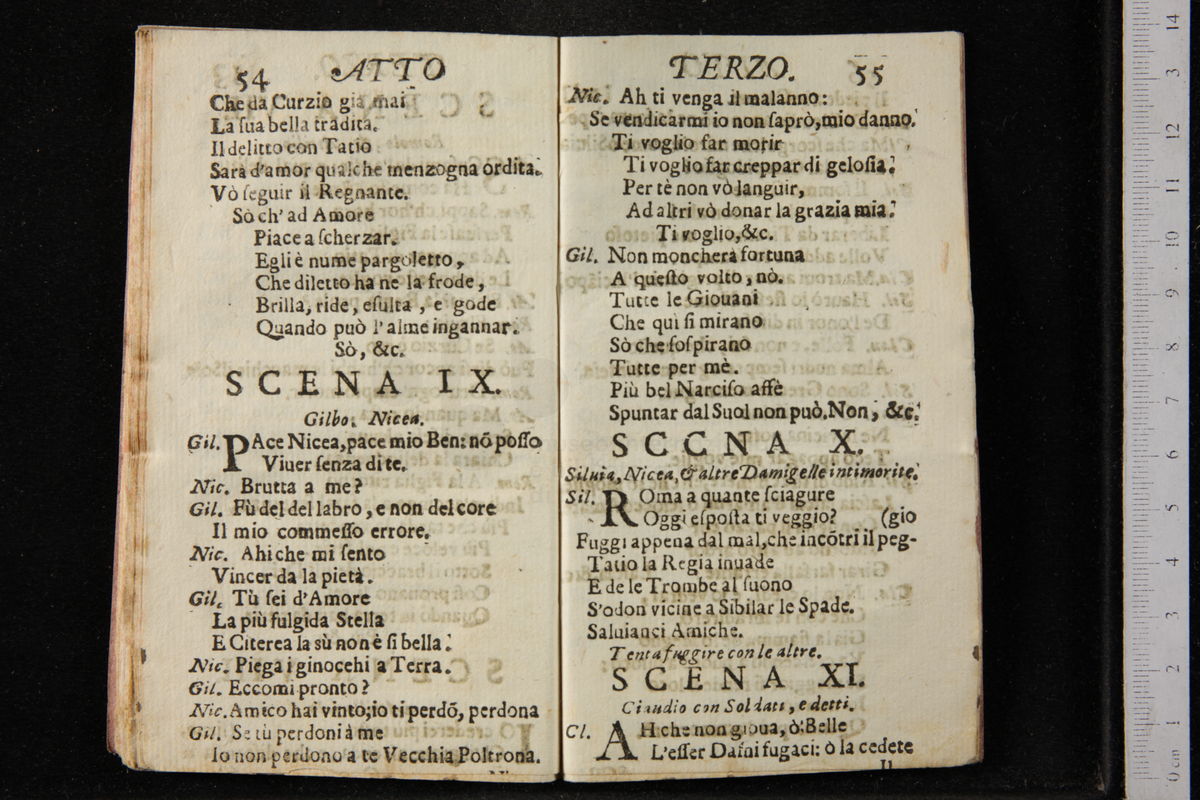 54 ATTO
Che da Curzio già mai
La ſua bella tradita.
Il delitto con Tatio
Sarà d'amor qualche menzogna ordita.
Vò ſeguir il Regnante.
Sò ch' ad Amore
Piace a ſcherzar.
Egli è nume pargoletto,
Che diletto ha ne la frode,
Brilla, ride, eſulta, e gode
Quando può l'alme ingannar.
Sò, &c.
SCENA IX.
Gilbo. Nicea.
Gil. PAce Nicea, pace mio Ben: nõ poſſo
Viuer ſenza di te.
Nic. Brutta a me?
Gil. Fù del del labro, e non del core
Il mio commeſſo errore.
Nic. Ahi che mi ſento
Vincer da la pietà.
Gil. Tù ſei d'Amore
La più fulgida Stella
E Citerea la sù non è ſi bella.
Nic. Piega i ginocehi a Terra.
Gil. Eccomi pronto?
Nic. Amico hai vinto; io ti perdõ, perdona
Gil. Se tù perdoni à me
Io non perdono a te Vecchia Poltrona.
TERZO. 55
Nic. Ah ti venga il malanno:
Se vendicarmi io non ſaprò, mio danno.
Ti voglio far morir
Ti voglio far creppar di geloſia.
Per tè non vò languir,
Ad altri vò donar la grazia mia.
Ti voglio, &c.
Gil. Non moncherà fortuna
A queſto volto, nò.
Tutte le Giouani
Che quì ſi mirano
Sò che ſoſpirano
Tutte per mè.
Più bel Narciſo affè
Spuntar dal Suol non può, Non, &c.
SCCNA X.
Siluia, Nicea, & altre Damigelle intimorite.
Sil. ROma a quante ſciagure
Oggi eſpoſta ti veggio? (gio
Fuggi appena dal mal, che incõtri il peg-
Tatio la Regia inuade
E de le Trombe al ſuono
S'odon vicine a Sibilar le Spade.
Saluianci Amiche.
Tenta fuggire con le altre.
SCENA XI.
Claudio con Soldati, e detti.
Cl. AH che non gioua, ò Belle
L'eſſer Dafni fugaci: ò la cedete
Il
14
3
12
11
10
9
8
7
6
5
4
3
2
1
0 cm